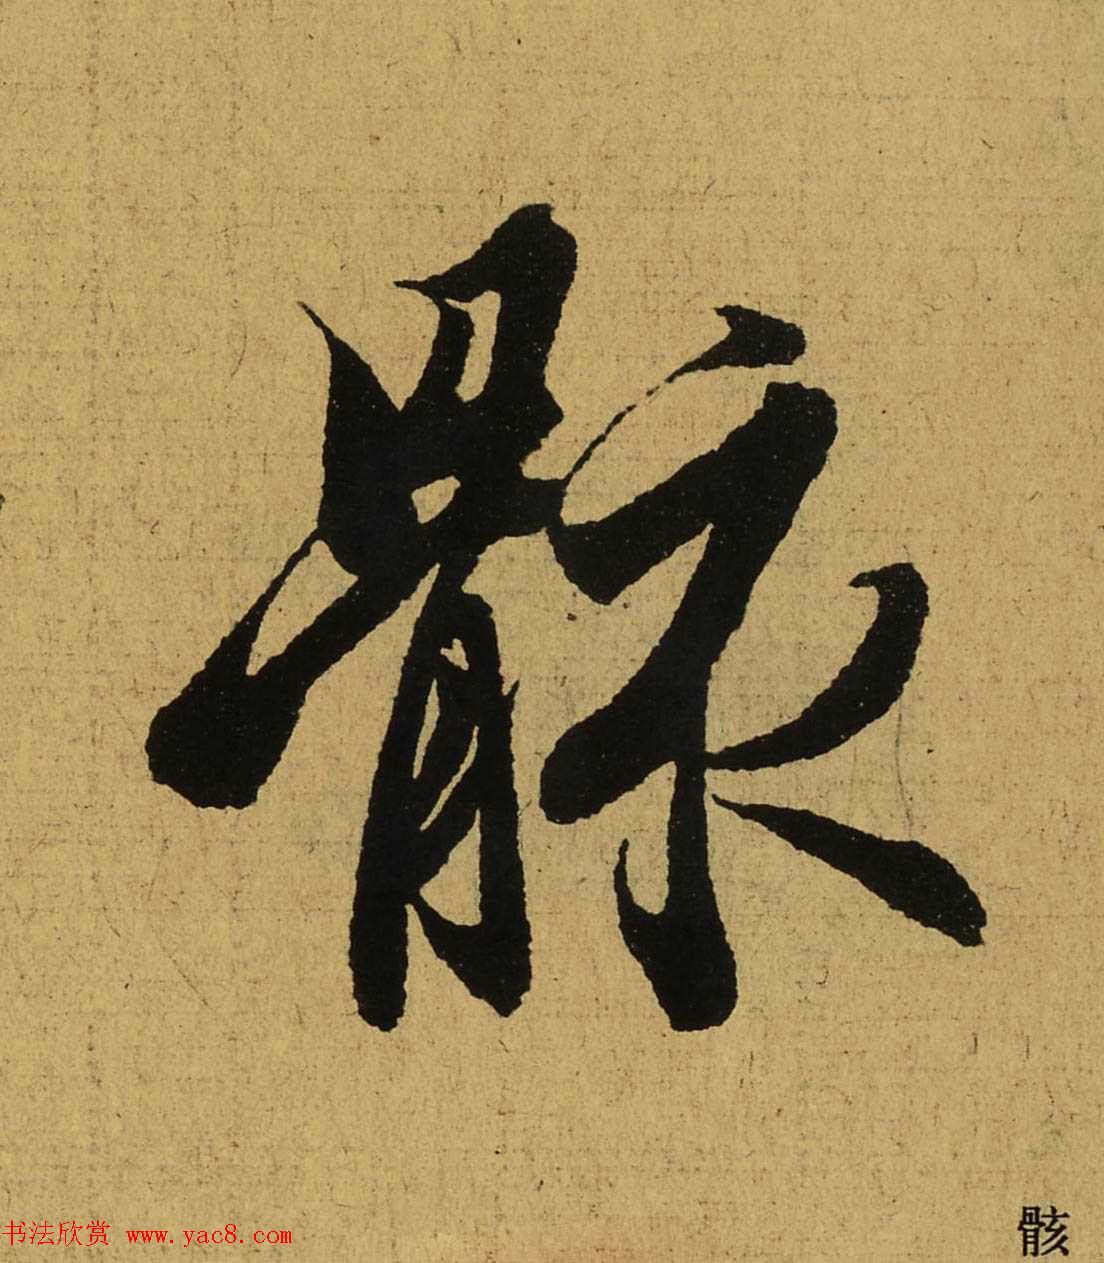 骸
书法欣赏 www.yac8.com
骸